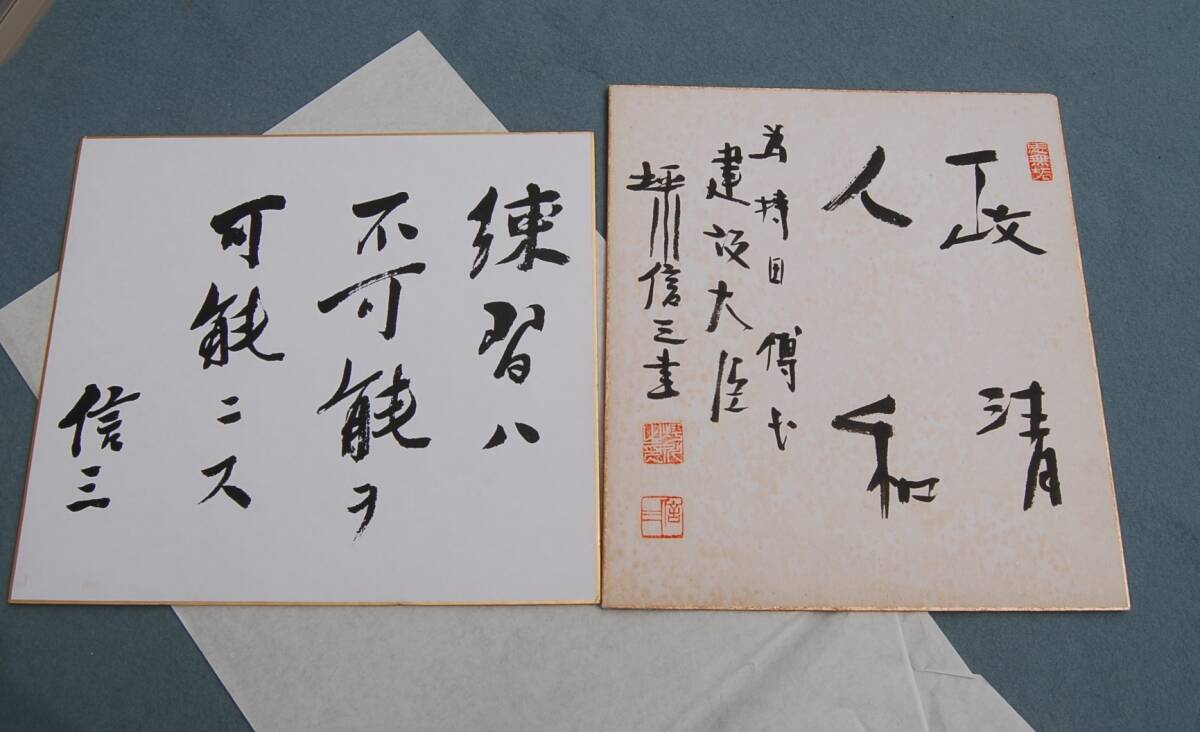 政清
人和
為持田傅士
建設大臣
坪川信三書
信三
練習ハ
不可能ヲ
可能ニス
信三